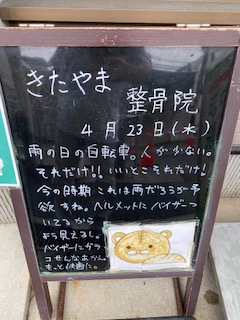 きたやま
整骨院
4月23日(水)
雨の日の自転車。人が少ない。
それだけ!!いいとこそれだけ!
今の時期これは雨だろうが予
欲すね。ヘルメットにバイザーつ
いてるから
ギラ見えるし。
バイザーにガラ
コせんなあかん。
もっと快適に。